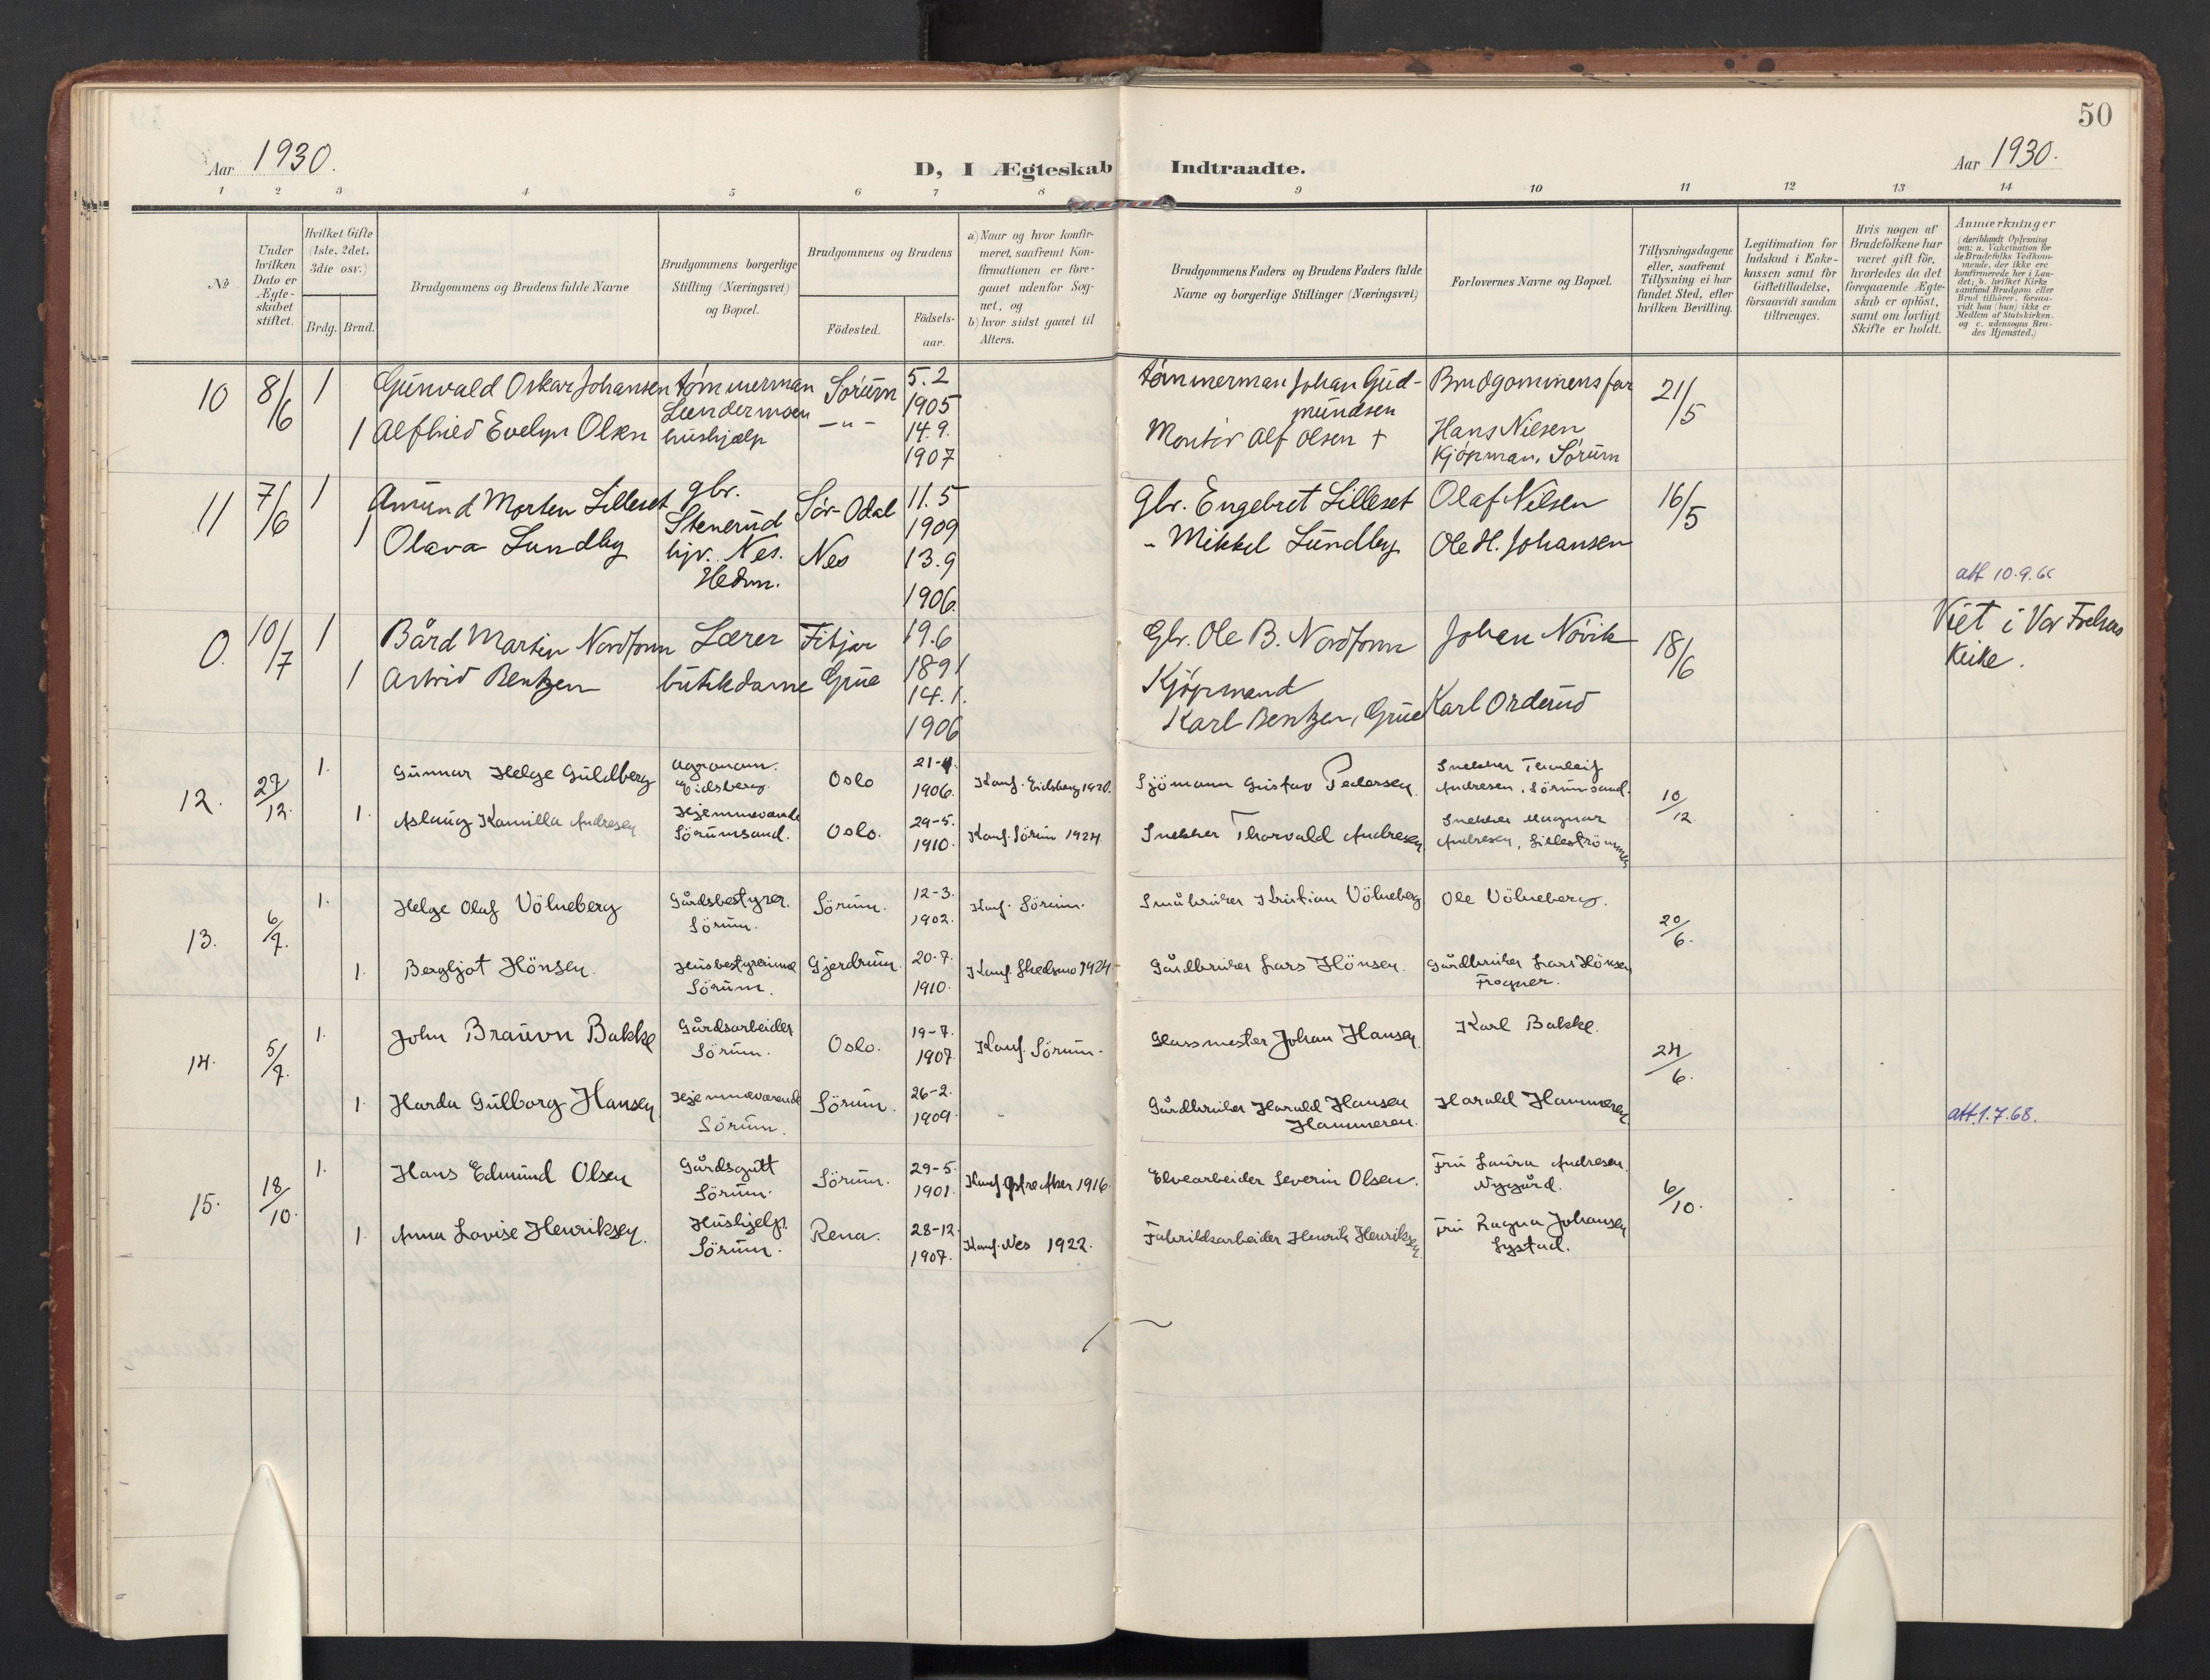 50
Aar 1930.
D, I Ægteskab Indtraadte.
Aar 1930.
1 2 3 4 5 6 7 8 9 10 11 12 13 14
No.
Under hvilken Dato er Ægteskabet stiftet.
Hvilket Gifte (1ste, 2det, 3die osv.)
Brdg. Brud.
Brudgommens og Brudens fulde Navne
Brudgommens borgerlige Stilling (Næringsvei) og Bopæl.
Brudgommens og Brudens
Fødested.
Fødsels-aar.
a) Naar og hvor konfir-
meret, saafremt Kon-
firmationen er fore-
gaaet udenfor Sog-
net, og
b) hvor sidst gaaet til
Alters.
Brudgommens Faders og Brudens Faders fulde
Navne og borgerlige Stillinger (Næringsvei)
Forlovernes Navne og Bopæl.
Tillysningsdagene
eller, saafremt
Tillysning ei har
fundet Sted, efter
hvilken Bevilling.
Legitimation for
Indskud i Enke-
kassen samt for
Giftetilladelse,
forsaavidt saadan
tiltrænges.
Hvis nogen af
Brudefolkene har
været gift før,
hvorledes da det
foregaaende Ægte-
skab er opløst,
samt om lovligt
Skifte er holdt.
Anmærkninger
(deriblandt Oplysning
om: a. Vakcination for
de Brudefolks Vedkom-
mende, der ikke ere
konfirmerede her i Lan-
det; b. hvilket Kirke
samfund Brudgom eller
Brud tilhører, forsaa-
vidt han (hun) ikke er
Medlem af Statskirken.
og c. udensogns Bru-
des Hjemsted.)
10 8/6 1 Gunvald Oskar Johansen tømmerman Sørum 5.2 1905 tømmerman Johan Gud-mundsen Brudgommens far 21/5
Lundermoen
1 Alfhild Evelyn Olsen hushjælp -"- 14.9. 1907 Montør Alf Olsen + Hans Nilsen
Kjøpman, Sørum
11 7/6 1 Amund Morten Lilleset gbr. Stenerud Sør-Odal 11.5 1909 Gbr. Engebret Lilleset Olaf Nilsen 16/5
1 Olava Lundby hjv. Nes. Hedm. Nes 13.9 1906. - Mikkel Lundby Ole H. Johansen
att 10.9.6
0. 10/7 1 Bård Martin Lærer Fitjar 19.6 1891 Gbr. Ole B. Johan Nøvik 18/6 Viet i Vor Frelsers Kirke.
1 Astrid Bentzen butikdame Grue 14.1. 1906 Kjøpmand Karl Bentzen, Grue Karl Orderud
12. 27/12. 1. Gunnar Helge Guldberg agronom. Eidsberg. Oslo 21-4. 1906. Konf. Eidsberg 1920. Sjömann Gustav Pedersen. Snekker Thorleif
Andresen, Sörumsand. 10/12
1. Aslaug Kamilla Andresen Hjemmeværende Sörumsand. Oslo. 29-5. 1910. Konf. Sörum 1924. Snekker Thorvald Andresen Snekker Magnar
Andresen, Lilleströmmen
13. 6/7. 1. Helge Olaf Völneberg Gårdsbestyrer. Sörum. Sörum. 12-3. 1902. Konf. Sörum. Småbruker Kristian Völneberg Ole Völneberg. 20/6.
1. Bergljot Hönsen. Husbestyrerinne Sörum. Gjerdrum. 20-7. 1910. Konf. Skedsmo 1924 Gårdbruker Lars Hönsen. Gårdbruker Lars Hönsen
Frogner.
14. 5/7. 1. John Brauvn Bakke Gårdsarbeider Sörum. Oslo. 19-7. 1907. Konf. Sörum. Glassmester Johan Hansen. Karl Bakke. 24/6.
1. Harda Gulborg Hansen Hjemmeværende Sörum. Sörum. 26-2. 1909. Gårdbruker Harald Hansen
Hammeren. Harald Hammeren. att. 1.7.68.
15. 18/10. 1. Hans Edmund Olsen Gårdsgutt Sörum. Sörum. 29-5. 1901. Konf. Østre Aker 1916. Elvearbeider Severin Olsen. Fru Laura Andresen.
Nygård. 6/10.
1. Anna Lovise Henriksen. Hushjelp. Sörum. Rena. 28-12. 1907. Konf. Nes 1922. Fabrikkarbeider Henrik Henriksen. Fru Ragna Johansen
Systad.